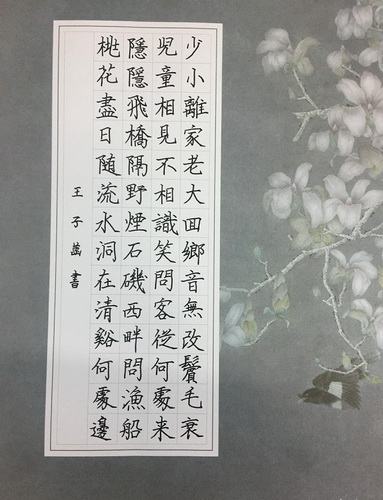 少小離家老大回鄉音無改鬢毛衰
兒童相見不相識笑問客從何處来
隱隱飛橋隔野煙石磯西畔問漁船
桃花盡日随流水洞在清谿何處邊
王子菡書